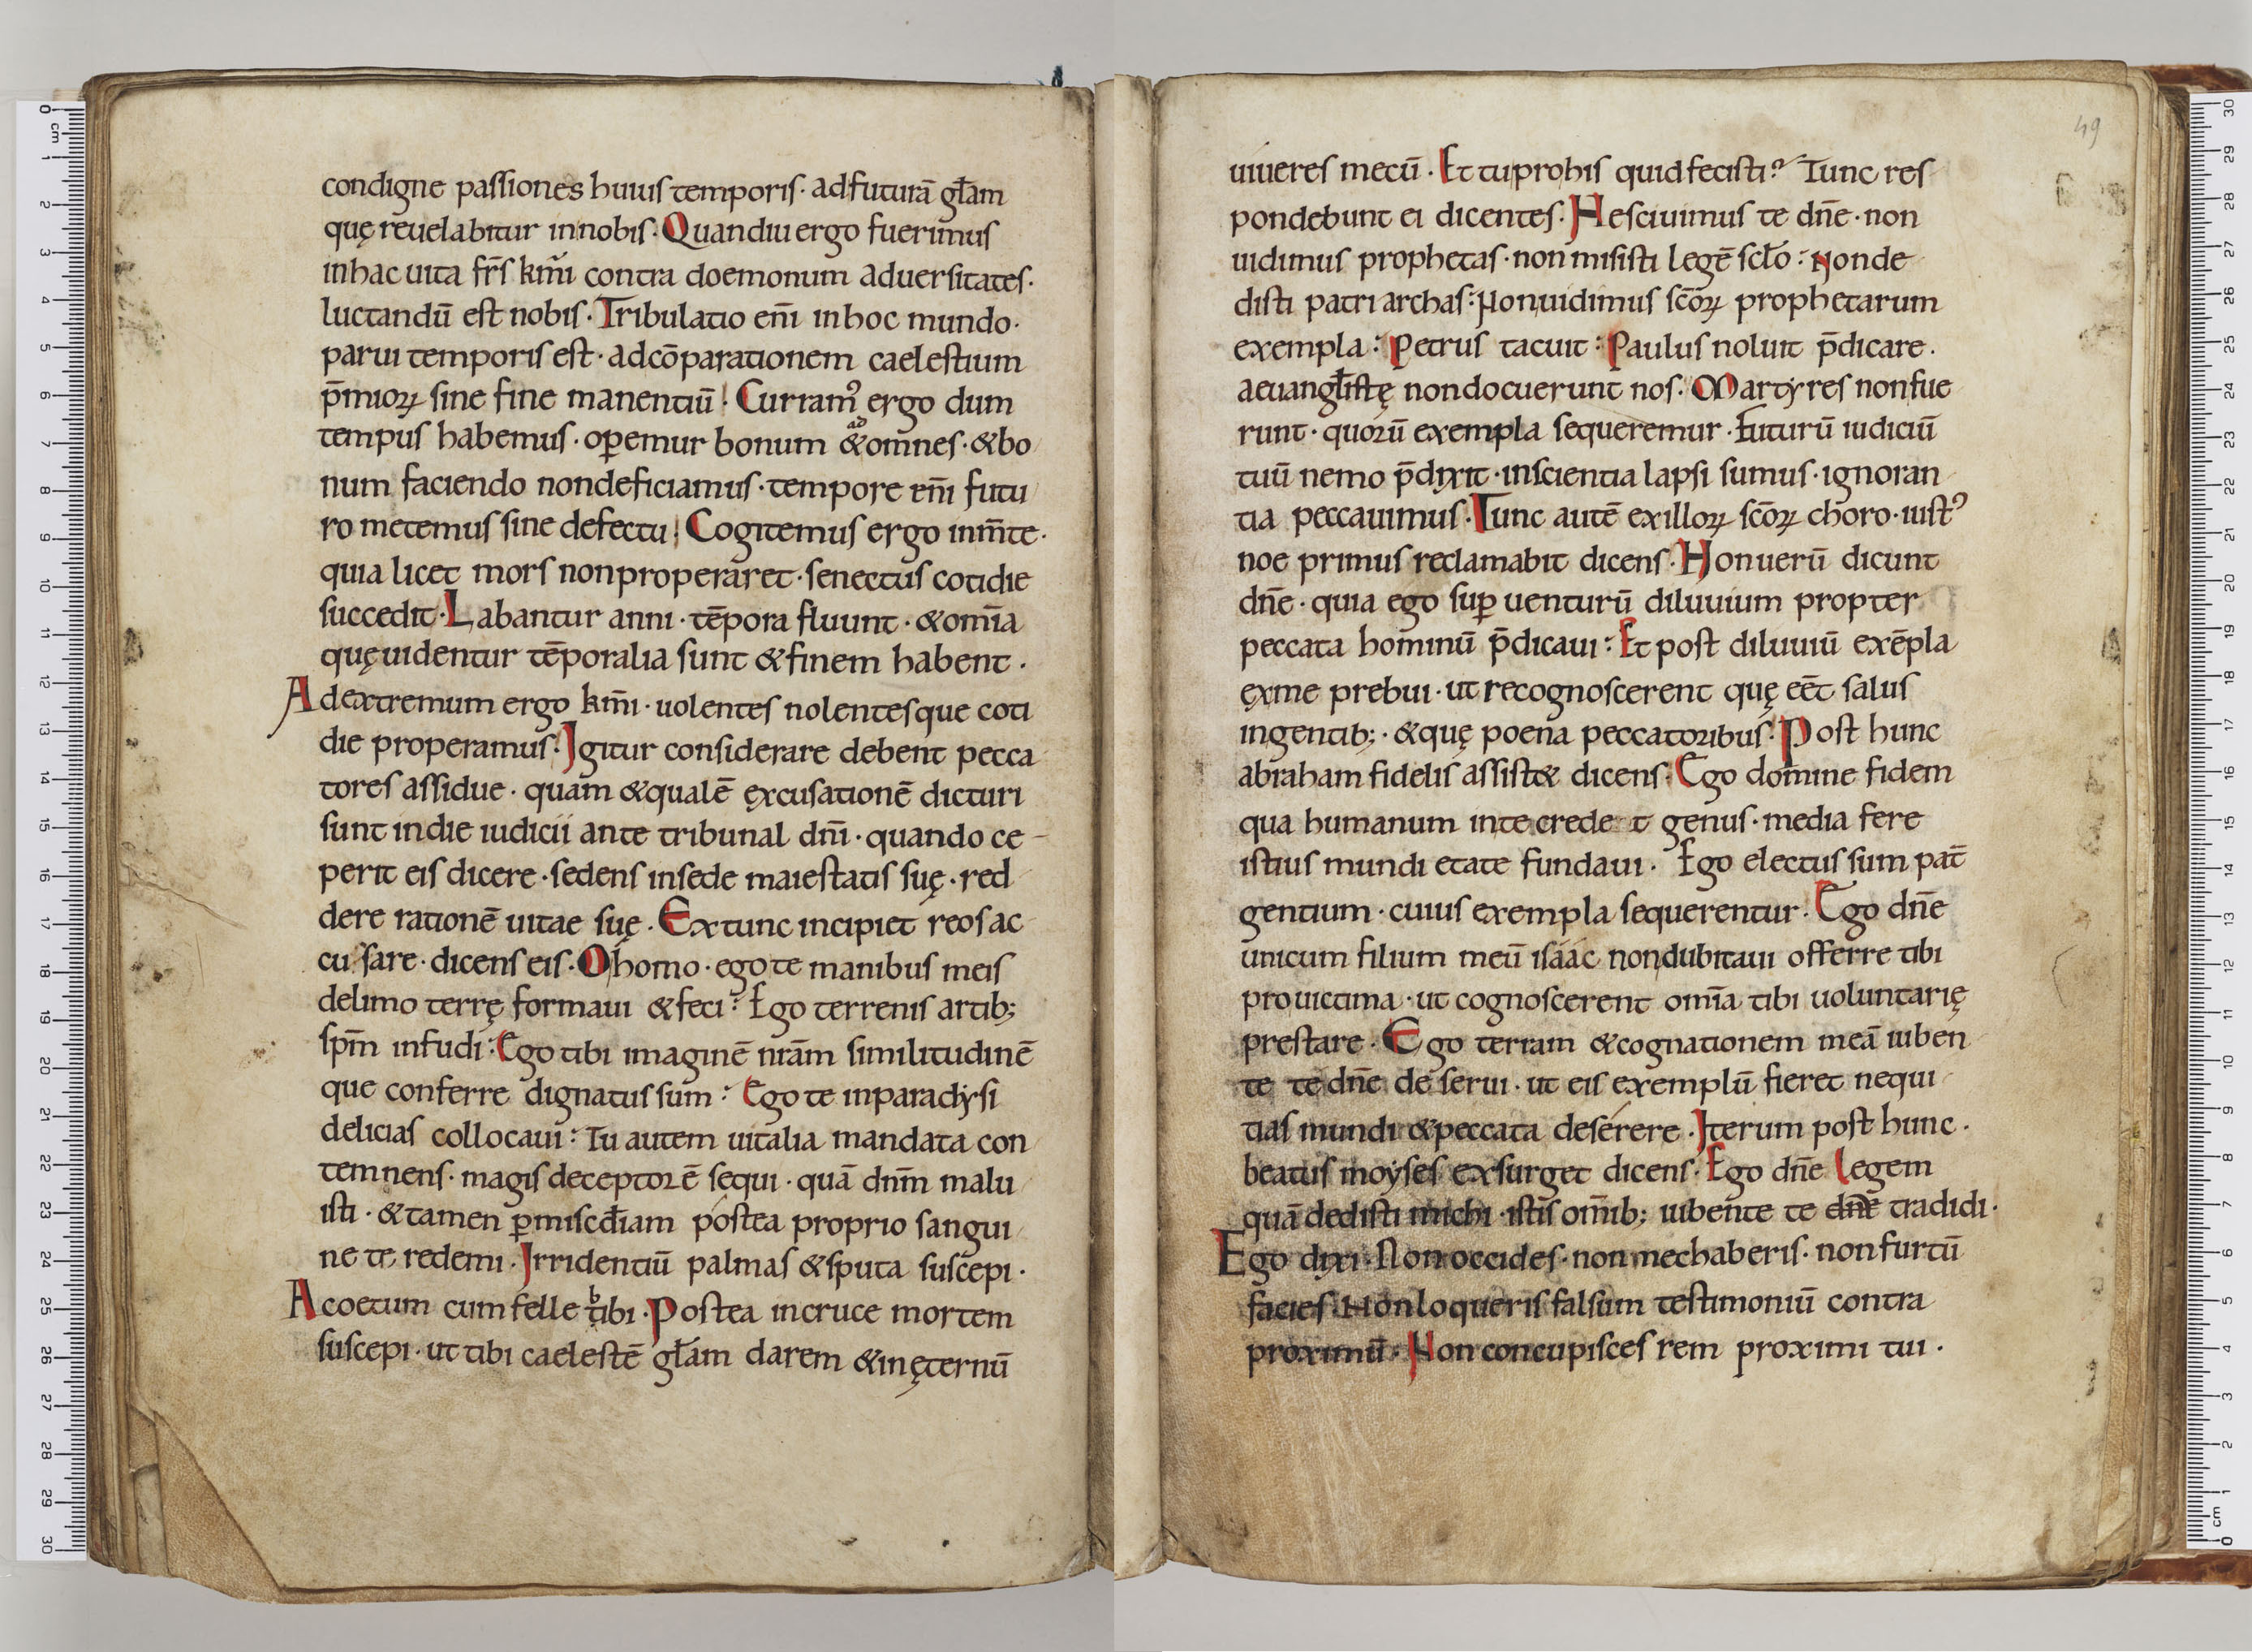 condigne passiones huius temporis · ad futurā gl̄am
quę reuelabitur in nobis · Quandiu ergo fuerimus
in hac uita fr̄s km̄i contra doemonum aduersitates ·
luctandū est nobis · Tribulatio en̄i in hoc mundo ·
parui temporis est · ad cōparationem caelestium
p̄mioꝝ sine fine manentiū · Curramꝰ ergo dum
tempus habemus · oꝑemur bonum & ad omnes · & bo
num faciendo non deficiamus · tempore en̄i futu
ro metemus sine defectu · Cogitemus ergo in m̄te ·
quia licet mors non properaret · senectus cotidie
succedit · Labantur anni · tēpora fluunt · & om̄ia
quę uidentur tēporalia sunt & finem habent ·
Ad extremum ergo km̄i · uolentes nolentesque coti
die properamus · Igitur considerare debent pecca
tores assidue · quam & qualē ęxcusationē dicturi
sunt in die iudicii ante tribunal dn̄i · quando ce-
perit eis dicere · sedens in sede maiestatis suę · red
dere rationē uitae suę · Ex tunc incipiet reos ac
cusare · dicens eis · O homo · ego te manibus meis
de limo terrę formaui & feci : Ego terrenis artib;
sp̄m infudi : Ego tibi imaginē nr̄am similitudinē
que conferre dignatus sum : Ego te in paradysi
delicias collocaui : Tu autem uitalia mandata con
temnens · magis deceptorē sequi · quā dn̄m malu
isti · & tamen ꝑ misc̄diam postea proprio sangui
ne te redemi · Irridentiū palmas & sputa suscepi ·
Acoetum cum felle bibi · Postea in cruce mortem
suscepi · ut tibi caelestē gl̄am darem & in ęternū
49
uiueres mecū · Et tu pro his quid fecisti ? Tunc res
pondebunt ei dicentes · Nesciuimus te dn̄e · non
uidimus prophetas · non misisti legē scl̄o : Non de
disti patriarchas : Non uidimus sc̄oꝝ prophetarum
exempla : Petrus tacuit : Paulus noluit p̄dicare ·
aeuangl̄istę non docuerunt nos · Martyres non fue
runt · quorū exempla sequeremur · Futurū iudiciū
tuū nemo p̄dixit · inscientia lapsi sumus · ignoran
tia peccauimus · Tunc autē ex illoꝝ sc̄oꝝ choro · iustꝰ
noe primus reclamabit dicens · Non uerū dicunt
dn̄e · quia ego suꝑ uenturū diluuium propter
peccata hominū p̄dicaui : Et post diluuiū exēpla
ęx me prebui · ut recognoscerent quę eēt salus
ingentib; · & quę poena peccatoribus · Post hunc
abraham fidelis assist& dicens · Ego domine fidem
qua humanum in te crederet genus · media fere
istius mundi etate fundaui · Ego electus sum pat̄
gentium · cuius exempla sequerentur · Ego dn̄e
unicum filium meū isaac non dubitaui offerre tibi
pro uictima · ut cognoscerent om̄ia tibi uoluntarię
prestare · Ego terram & cognationem meā iuben
te te dn̄e deserui · ut eis exemplū fieret nequi
tias mundi & peccata deserere · Iterum post hunc ·
beatus moyses exsurget dicens · Ego dn̄e legem
quā dedisti michi · istis om̄ib; iubente te dn̄e tradidi ·
Ego dixi · Non occides · non mechaberis · non furtū
facies · Non loqueris falsum testimoniū contra
proximū · Non concupisces rem proximi tui ·